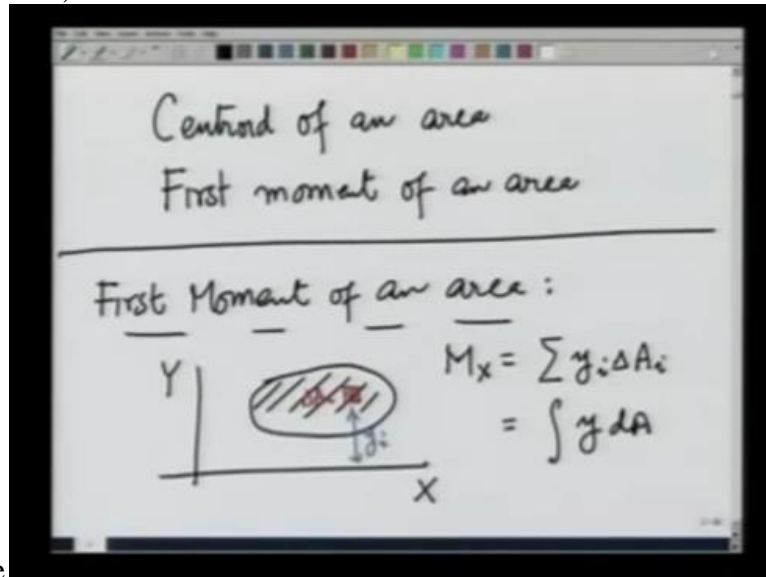 Centroid of an area
First moment of an area
First Moment of an area:
Y
M_X = ∑ y_i ΔA_i
= ∫ y dA
y_i
X